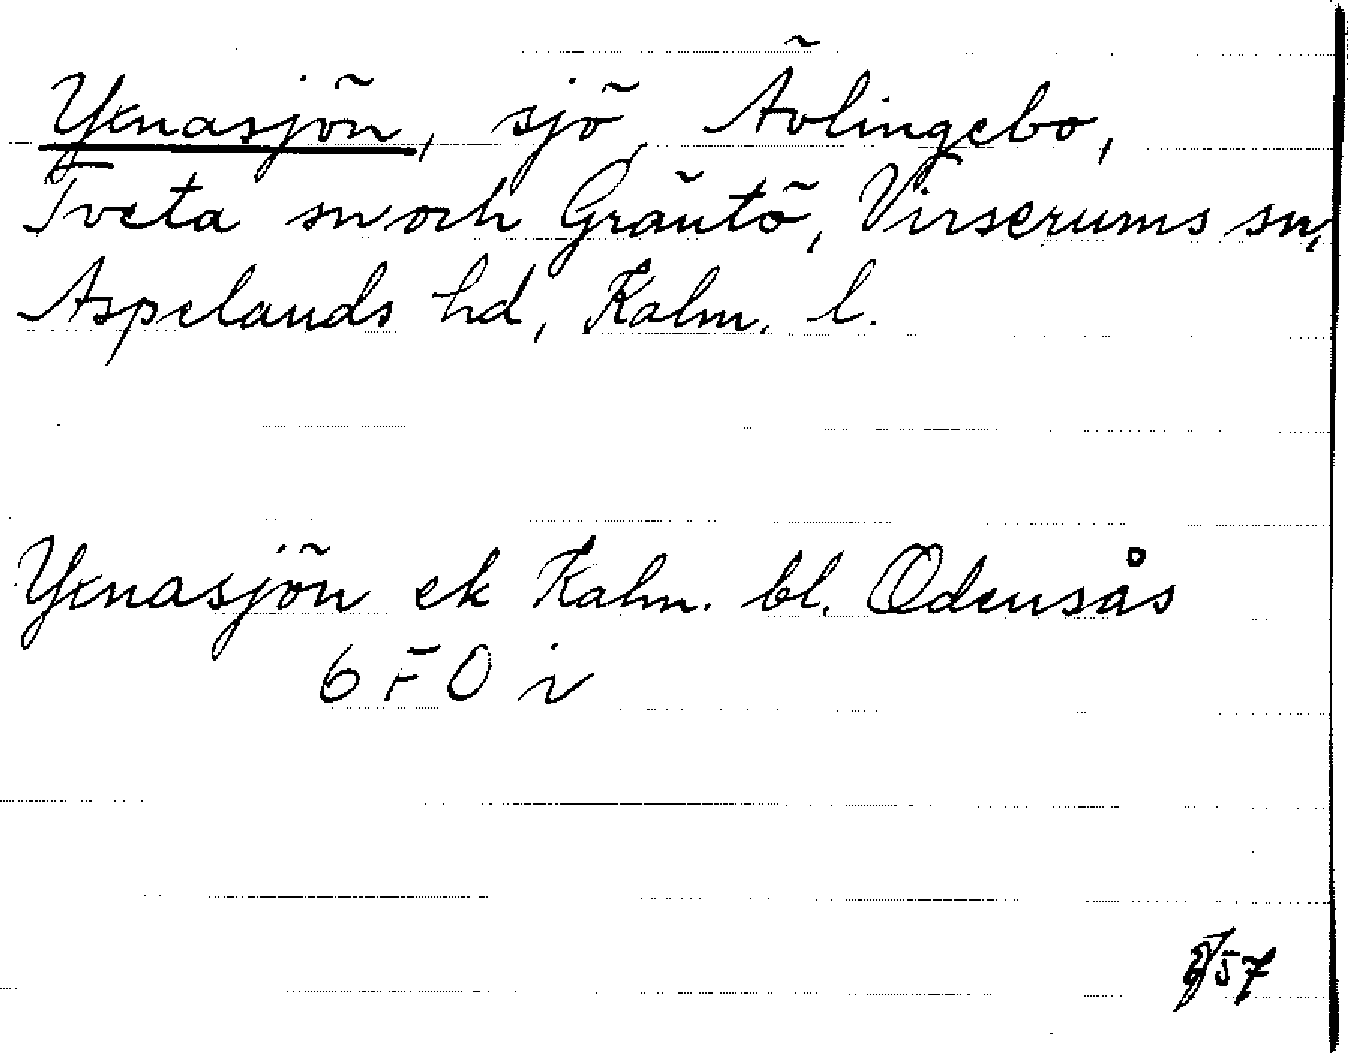 Yxnasjön, sjö, Ävlingebo,
Tveta sn och Gräntö, Virserums sn,
Aspelands hd, Kalm. l.
Yxnasjön ek Kalm. bl. Odensås
6 F 0 i